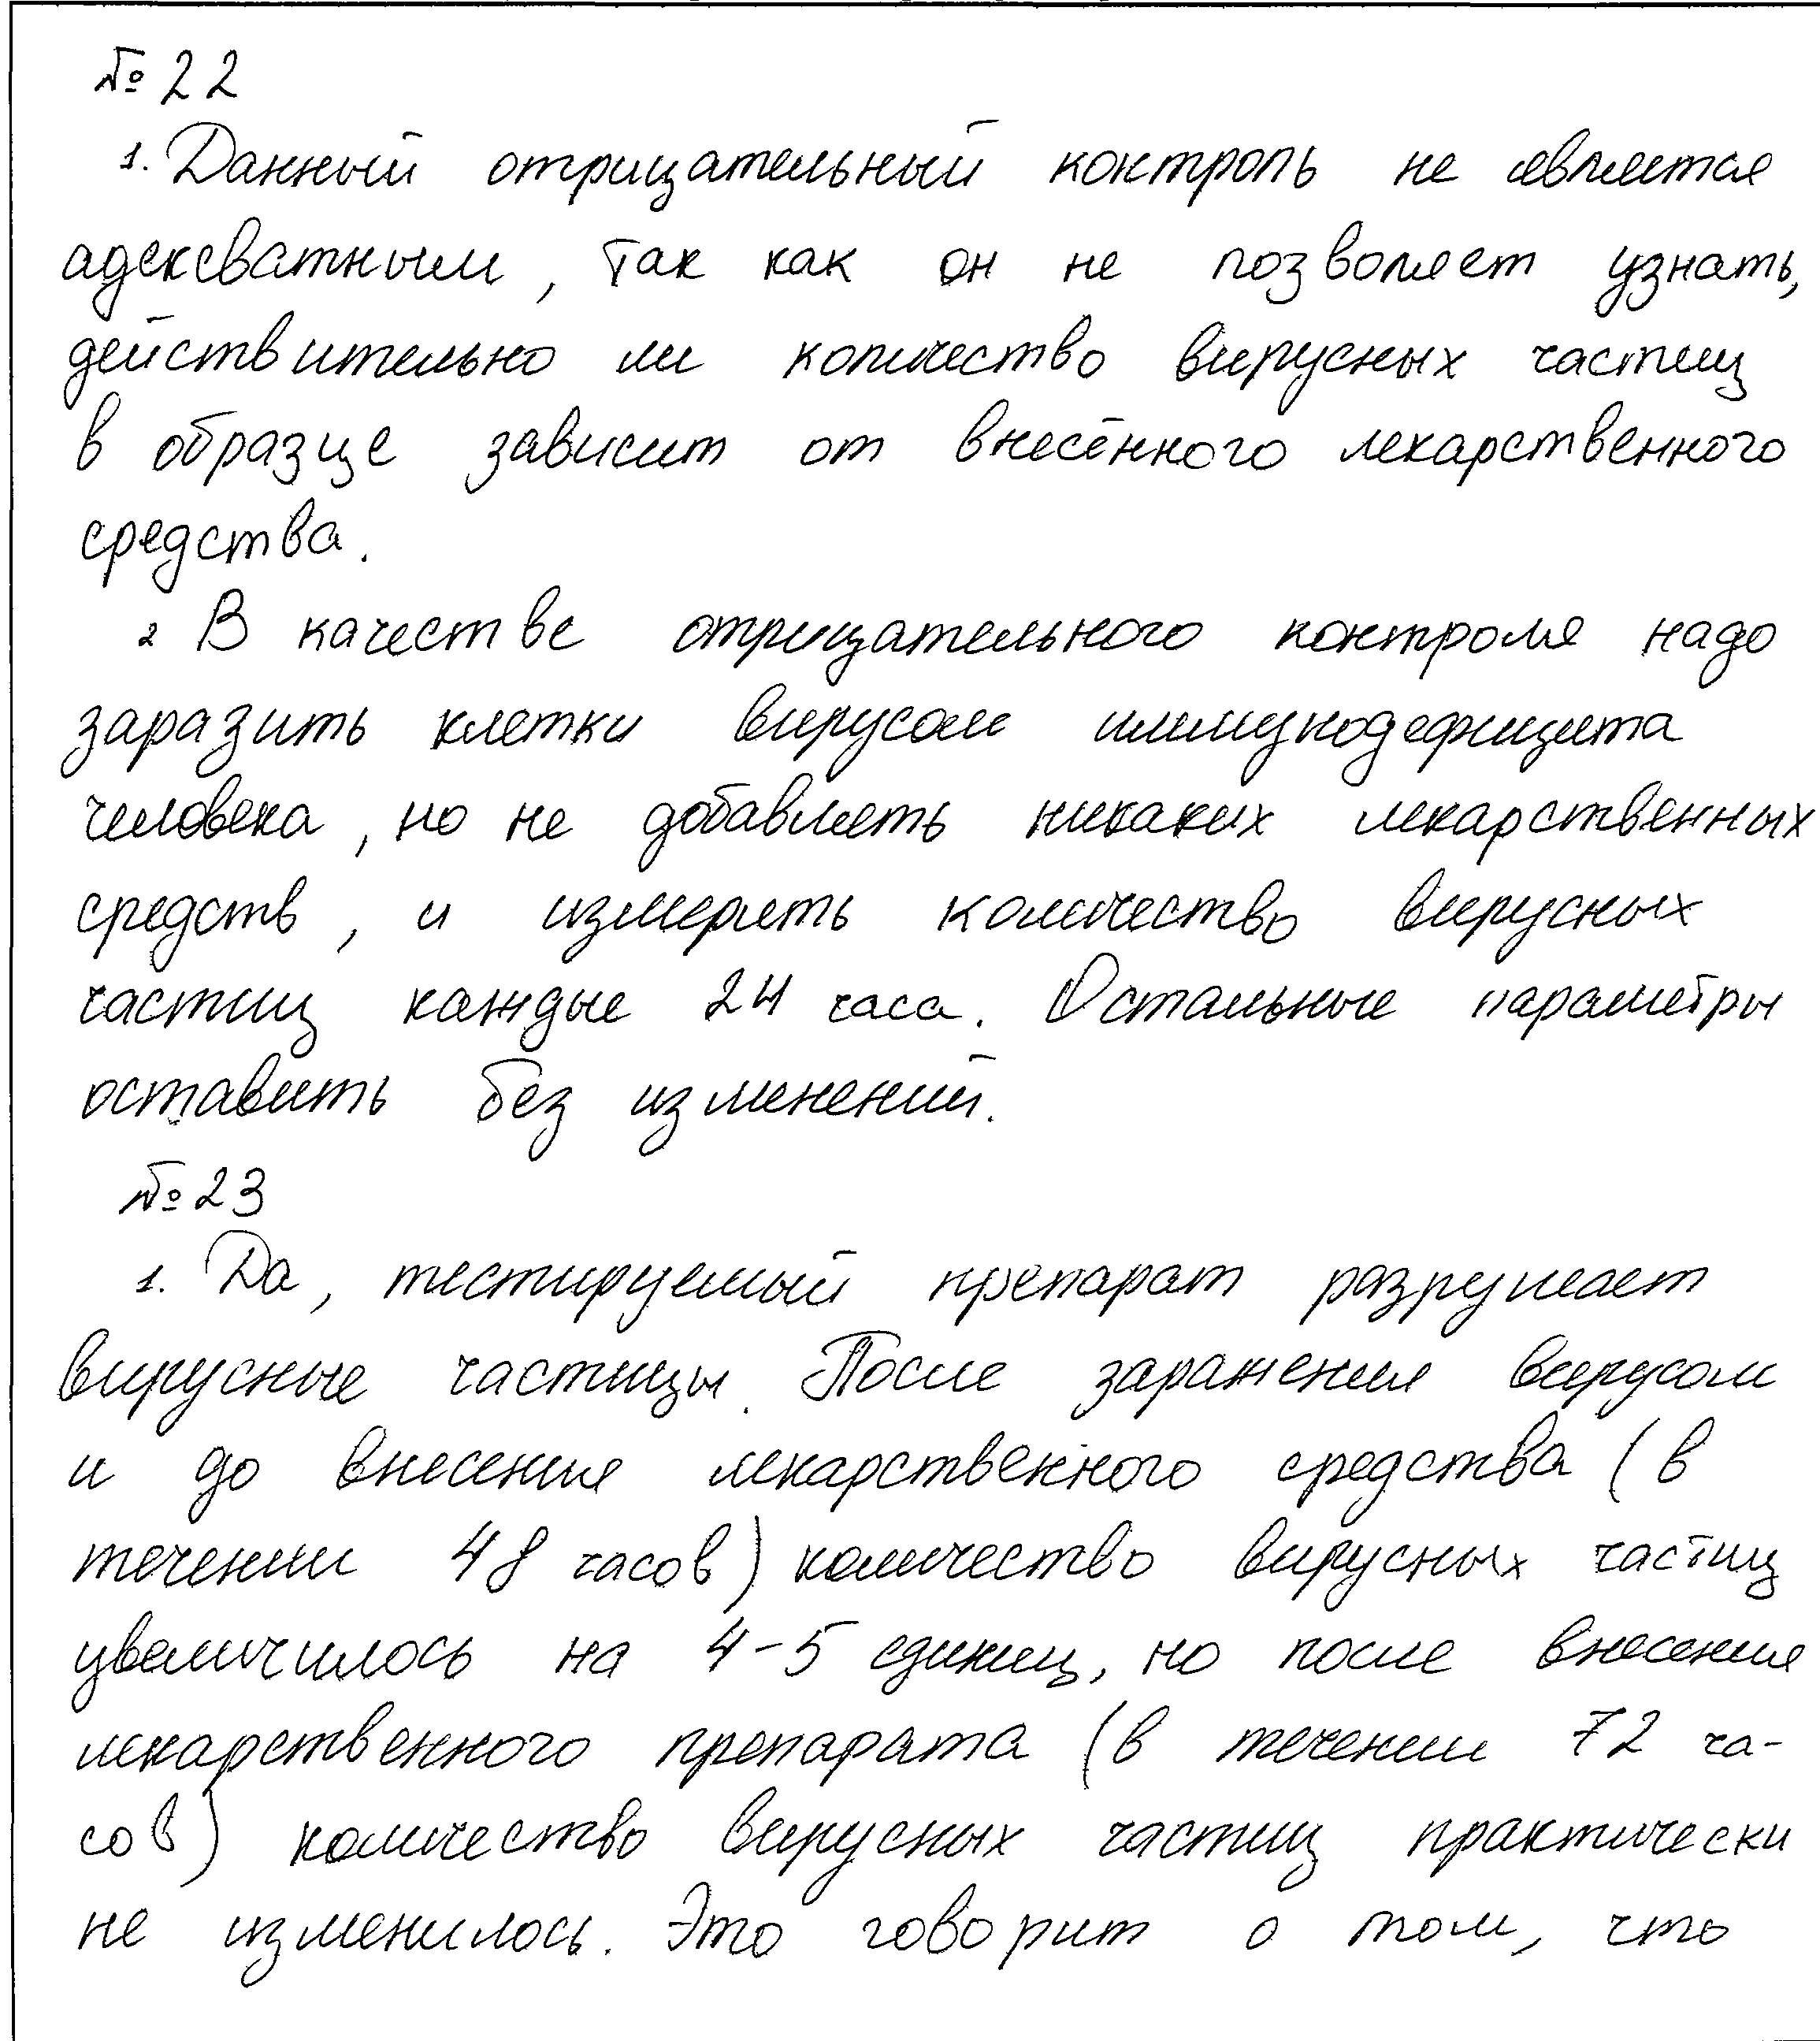 № 22
1. Данный отрицательный контроль не является
адексватным, так как он не позволяет узнать,
действительно ли количество вирусных частиц
в образце зависит от внесённого лекарственного
средства.
2 В качестве отрицательного контроля надо
заразить клетки вирусом иммунодефицита
человека, но не добавлять никаких лекарственных
средств, и измерять количество вирусных
частиц каждые 24 часа. Остальные параметры
оставить без изменений.
№ 23
1. Да, тестируемый препарат разрушает
вирусные частицы. После заражения вирусом
и до внесения лекарственного средства (в
течении 48 часов) количество вирусных частиц
увеличилось на 4-5 единиц, но после внесения
лекарственного препарата (в течении 72 ча-
сов) количество вирусных частиц практически
не изменилось. Это говорит о том, что